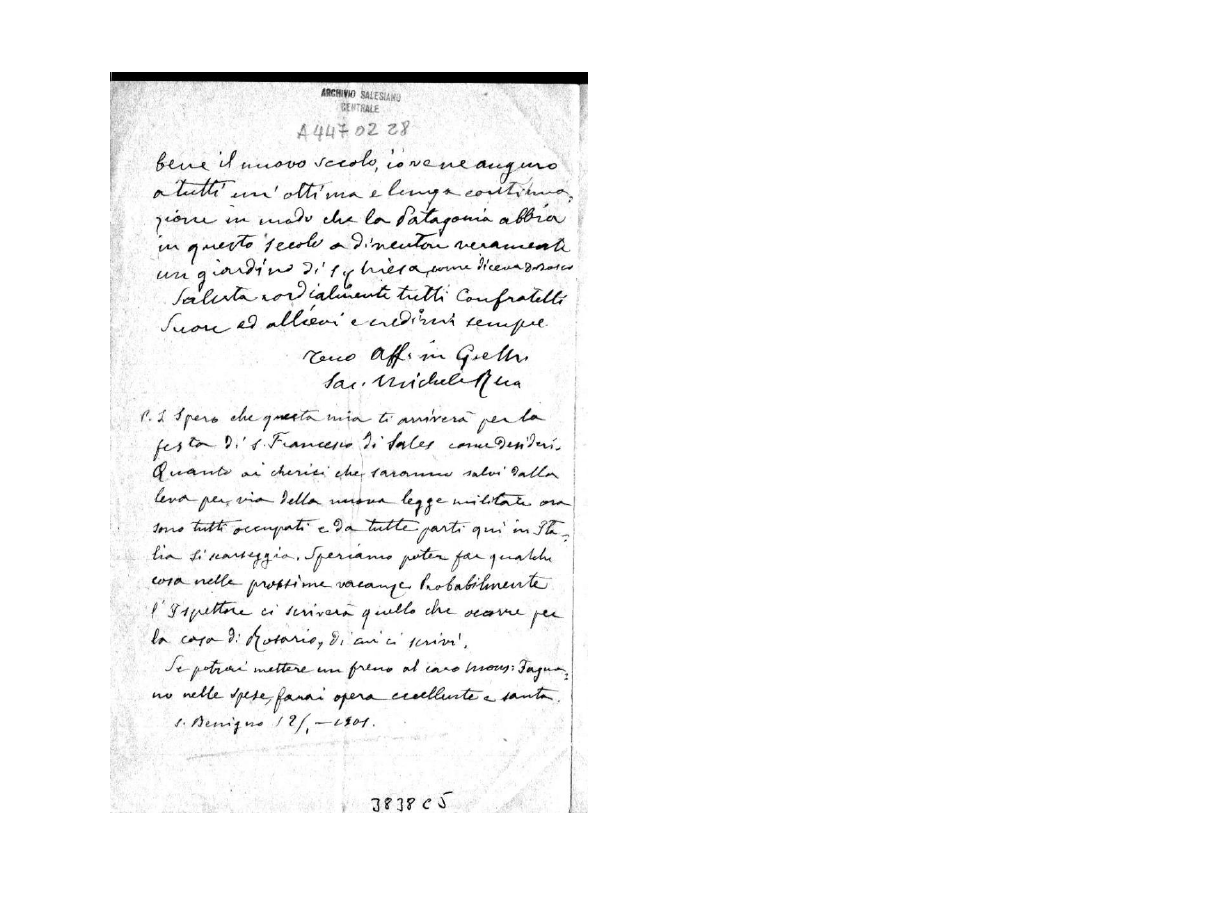 ARCHIVIO SALESIANO
CENTRALE
A 447 02 28
bene il nuovo secolo, io ve ne auguro
a tutti un' ottima e lunga continua-
zione in modo che la Patagonia abbia
in questo secolo a diventar veramente
un giardino di S. Chiesa, come diceva D. Bosco
Saluta cordialmente tutti Confratelli
Suore ed allievi e credimi sempre
tuo Aff. in G. e M.
Sac. Michele Rua
P. S. Spero che questa mia ti arriverà per la
festa di S. Francesco di Sales come desideri.
Quanto ai chierici che saranno salvi dalla
leva per via della nuova legge militare ora
sono tutti occupati e da tutte parti qui in Ita-
lia si scarseggia. Speriamo poter far qualche
cosa nelle prossime vacanze. Probabilmente
l' Ispettore ci scriverà quello che occorre per
la casa di Rosario, di cui ci scrivi.
Se potrai mettere un freno al caro Mons: Fagna-
no nelle spese, farai opera eccellente e santa.
S. Benigno 12/1 - 1901.
3838 C 5